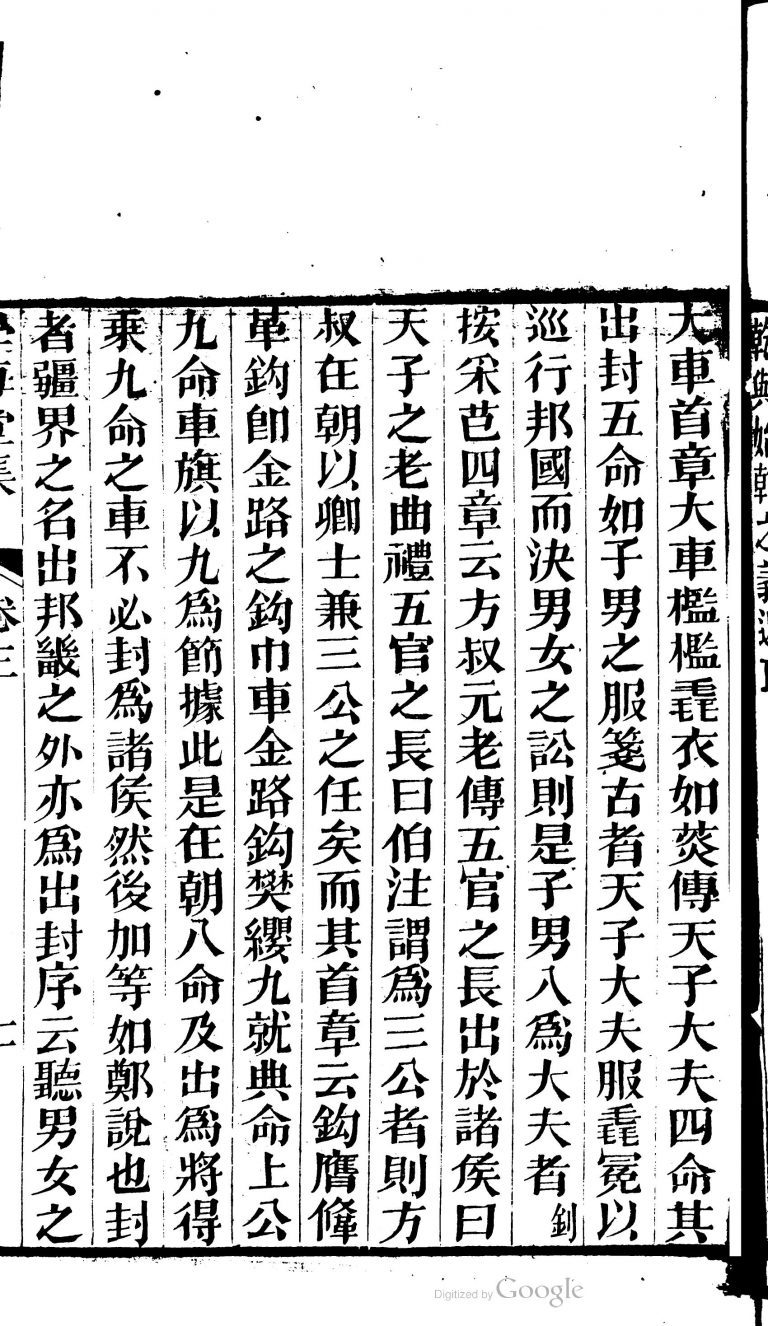 大車首章大車檻檻毳衣如菼傳天子大夫四命其
出封五命如子男之服箋古者天子大夫服毳冕以
巡行邦國而決男女之訟則是子男入爲大夫者釗
按采芑四章云方叔元老傳五官之長出於諸侯曰
天子之老曲禮五官之長曰伯注謂爲三公者則方
叔在朝以卿士兼三公之任矣而其首章云鈎膺鞗
革鈎卽金路之鈎巾車金路鈎樊纓九就典命上公
九命車旗以九爲節據此是在朝八命及出爲將得
乘九命之車不必封爲諸侯然後加等如鄭說也封
者疆界之名出邦畿之外亦爲出封序云聽男女之
海堂集 卷三
Digitized by Google